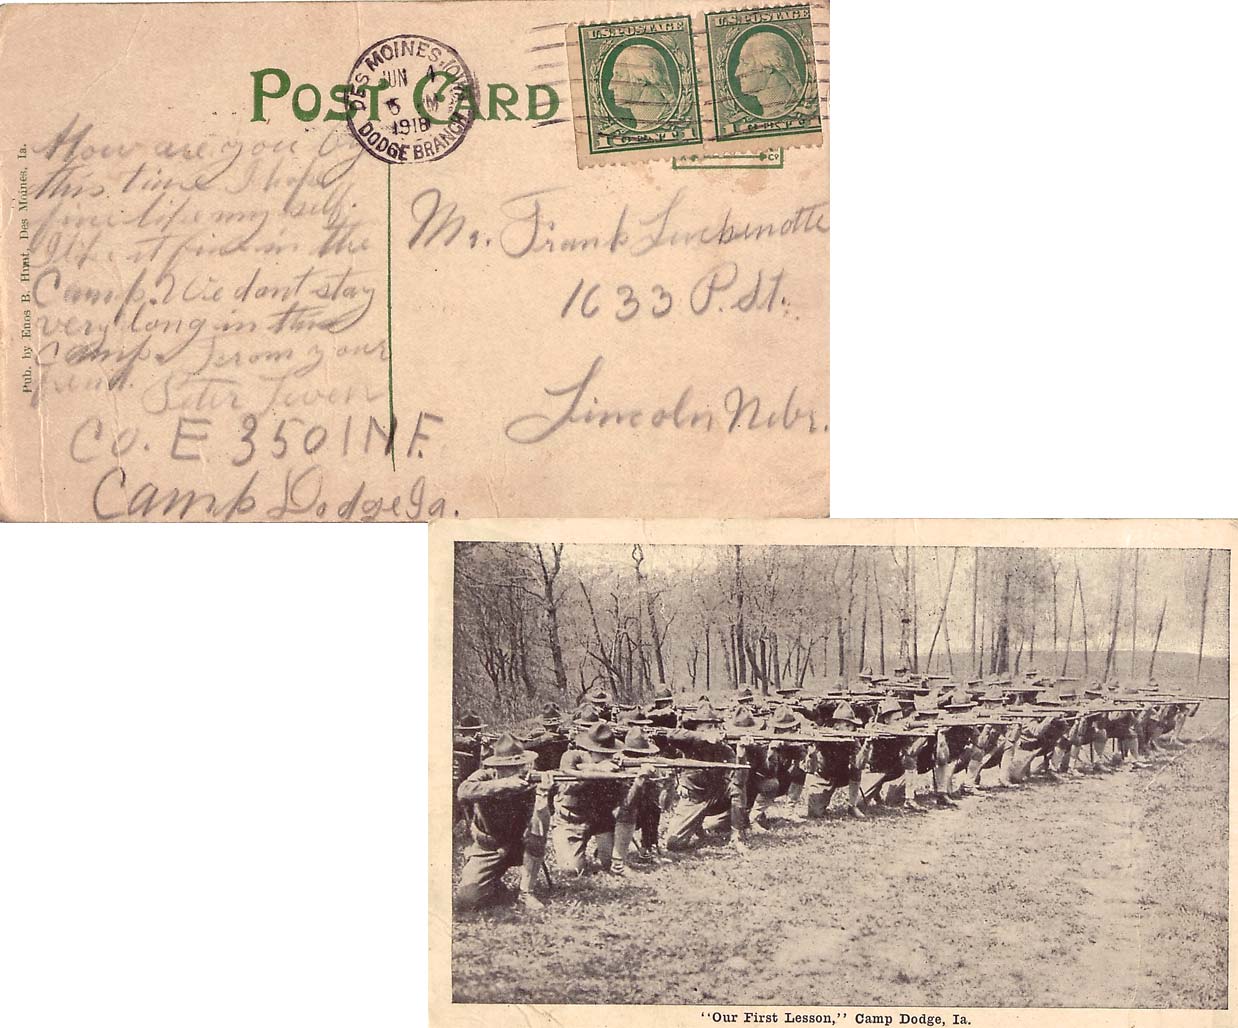 POST CARD
DES MOINES, IOWA
JUN 4
5 PM
1918
DODGE BRANCH
U.S. POSTAGE
U.S. POSTAGE
Pub. by Enos B. Hunt, Des Moines, Ia.
How are you by
this time I hope
fine like my self.
I like it fine in the
Camp. We dont stay
very long in this
camp. From your
Peter
Co. E. 350 INF.
Camp Dodge Ia.
Mr. Frank
1633 P. St.
Lincoln Nebr.
"Our First Lesson," Camp Dodge, Ia.